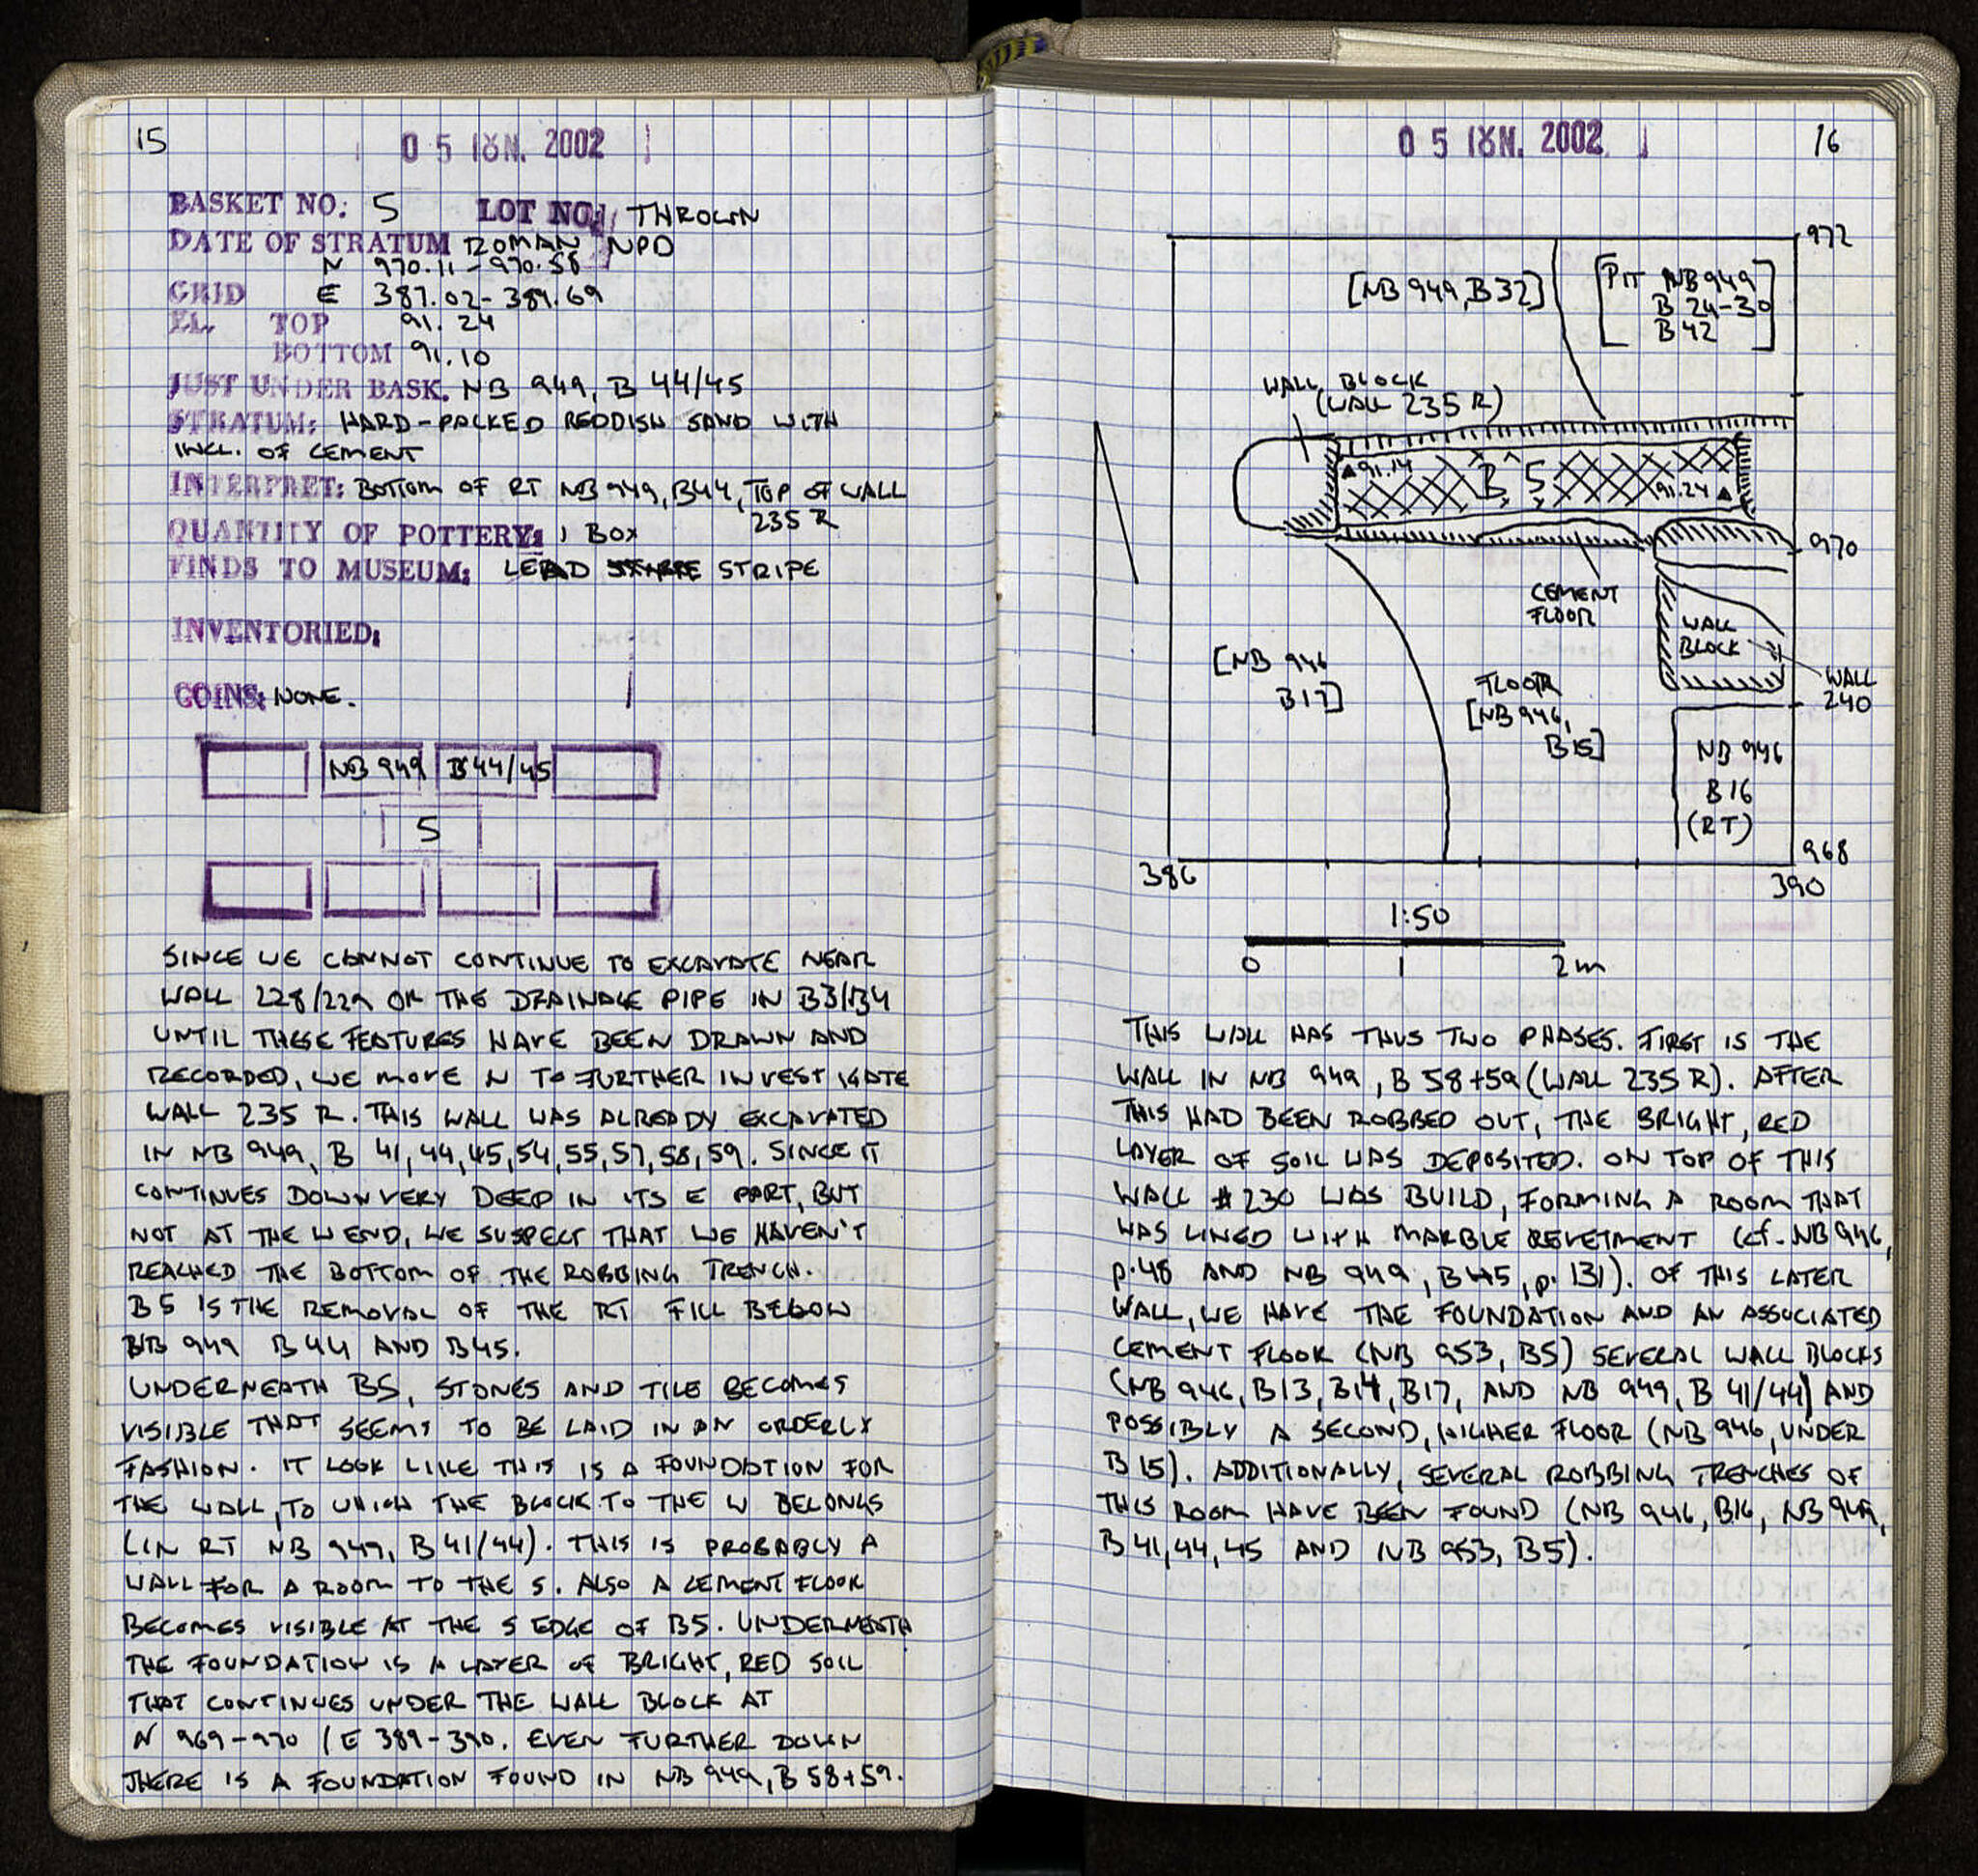 15
05 ΙΟΥΝ. 2002
BASKET NO: 5 LOT NO: THROWN
DATE OF STRATUM ROMAN, NPD
N 970.11-970.58
GRID E 387.02-389.69
EL. TOP 91.24
BOTTOM 91.10
JUST UNDER BASK. NB 949, B 44/45
STRATUM: HARD-PACKED REDDISH SAND WITH
INCL. OF CEMENT
INTERPRET: BOTTOM OF RT NB 949, B44, TOP OF WALL
235 R
QUANTITY OF POTTERY: 1 BOX
FINDS TO MUSEUM: LEAD STRIPE
INVENTORIED:
COINS: NONE.
NB 949 B 44/45
5
SINCE WE CANNOT CONTINUE TO EXCAVATE NEAR
WALL 228/229 OR THE DRAINAGE PIPE IN B3/B4
UNTIL THESE FEATURES HAVE BEEN DRAWN AND
RECORDED, WE MOVE N TO FURTHER INVESTIGATE
WALL 235 R. THIS WALL WAS ALREADY EXCAVATED
IN NB 949, B 41,44,45,54,55,57,58,59. SINCE IT
CONTINUES DOWN VERY DEEP IN ITS E PART, BUT
NOT AT THE W END, WE SUSPECT THAT WE HAVEN'T
REACHED THE BOTTOM OF THE ROBBING TRENCH.
B5 IS THE REMOVAL OF THE RT FILL BELOW
NB 949 B44 AND B45.
UNDERNEATH B5, STONES AND TILE BECOMES
VISIBLE THAT SEEMS TO BE LAID IN AN ORDERLY
FASHION. IT LOOK LIKE THIS IS A FOUNDATION FOR
THE WALL, TO WHICH THE BLOCK TO THE W BELONGS
(IN RT NB 949, B 41/44). THIS IS PROBABLY A
WALL FOR A ROOM TO THE S. ALSO A CEMENT FLOOR
BECOMES VISIBLE AT THE S EDGE OF B5. UNDERNEATH
THE FOUNDATION IS A LAYER OF BRIGHT, RED SOIL
THAT CONTINUES UNDER THE WALL BLOCK AT
N 969-970 / E 389-390. EVEN FURTHER DOWN
THERE IS A FOUNDATION FOUND IN NB 949, B 58+59.
05 ΙΟΥΝ. 2002
16
972
[NB 949, B32]
[PIT NB 949
B 24-30
B 42]
WALL BLOCK
(WALL 235 R)
91.14
B 5
91.24
970
CEMENT
FLOOR
WALL
BLOCK
WALL
240
[NB 946
B17]
FLOOR
[NB 946,
B15]
NB 946
B 16
(RT)
968
386
390
1:50
0 1 2m
THIS WALL HAS THUS TWO PHASES. FIRST IS THE
WALL IN NB 949, B 58+59 (WALL 235 R). AFTER
THIS HAD BEEN ROBBED OUT, THE BRIGHT, RED
LAYER OF SOIL WAS DEPOSITED. ON TOP OF THIS
WALL #230 WAS BUILD, FORMING A ROOM THAT
WAS LINED WITH MARBLE REVETMENT (cf. NB 946,
p.48 AND NB 949, B45, p. 131). OF THIS LATER
WALL, WE HAVE THE FOUNDATION AND AN ASSOCIATED
CEMENT FLOOR (NB 953, B5) SEVERAL WALL BLOCKS
(NB 946, B13, B14, B17, AND NB 949, B 41/44) AND
POSSIBLY A SECOND, HIGHER FLOOR (NB 946, UNDER
B 15). ADDITIONALLY, SEVERAL ROBBING TRENCHES OF
THIS ROOM HAVE BEEN FOUND (NB 946, B16, NB 949,
B 41,44,45 AND NB 953, B5).